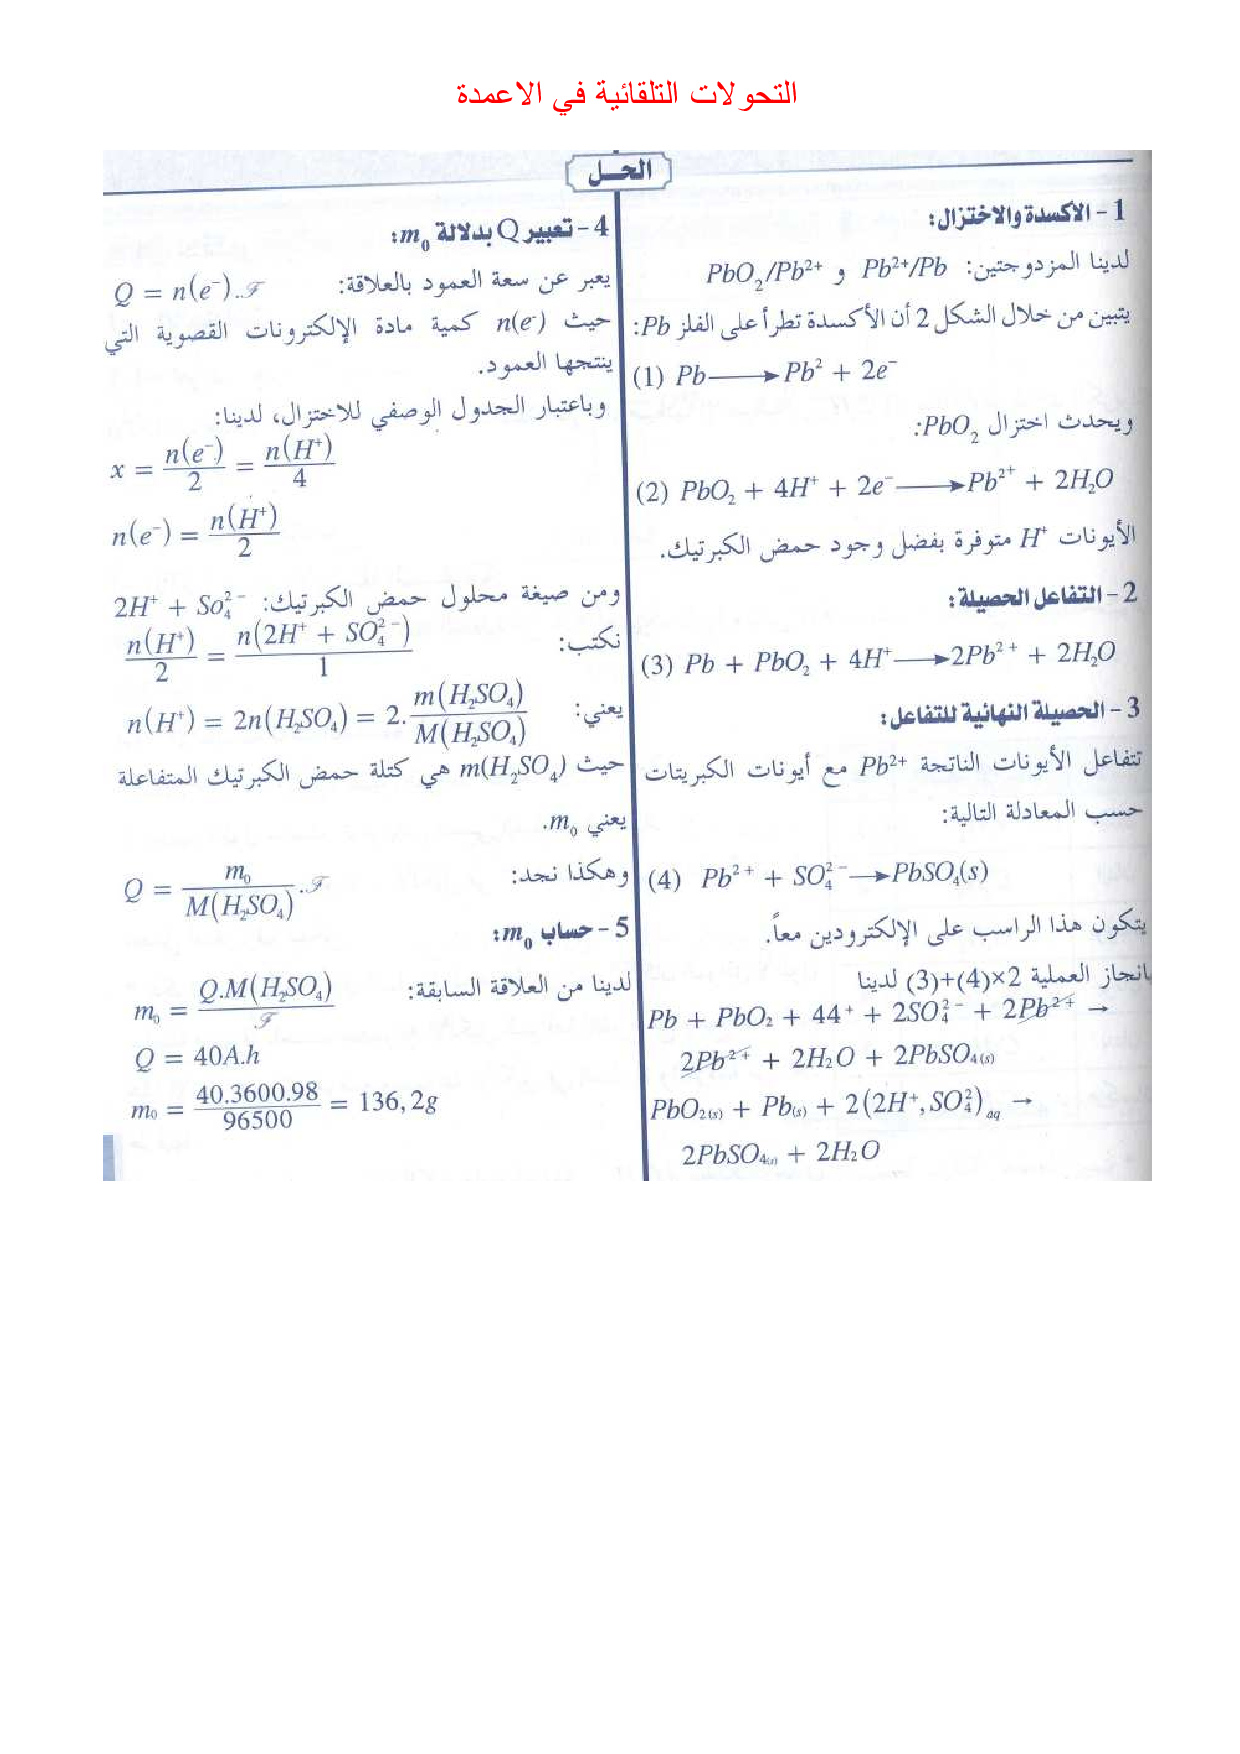 التحولات التلقائية في الاعمدة
الحـل
1- الاكسدة والاختزال:
لدينا المزدوجتين: Pb²⁺/Pb و PbO₂/Pb²⁺
يتبين من خلال الشكل 2 أن الأكسدة تطرأ على الفلز Pb:
(1) Pb ⟶ Pb² + 2e⁻
ويحدث اختزال PbO₂:
(2) PbO₂ + 4H⁺ + 2e⁻ ⟶ Pb²⁺ + 2H₂O
الأيونات H⁺ متوفرة بفضل وجود حمض الكبرتيك.
2- التفاعل الحصيلة:
(3) Pb + PbO₂ + 4H⁺ ⟶ 2Pb²⁺ + 2H₂O
3- الحصيلة النهائية للتفاعل:
تتفاعل الأيونات الناتجة Pb²⁺ مع أيونات الكبريتات
حسب المعادلة التالية:
(4) Pb²⁺ + SO₄²⁻ ⟶ PbSO₄(s)
يتكون هذا الراسب على الإلكترودين معاً.
بانجاز العملية 2×(4)+(3) لدينا
Pb + PbO₂ + 44⁺ + 2SO₄²⁻ + 2Pb²⁺ →
2Pb²⁺ + 2H₂O + 2PbSO₄(s)
PbO₂(s) + Pb(s) + 2(2H⁺, SO₄²)aq →
2PbSO₄(s) + 2H₂O
4- تعبير Q بدلالة m₀:
يعبر عن سعة العمود بالعلاقة: Q = n(e⁻)..ℱ
حيث n(e⁻) كمية مادة الإلكترونات القصوية التي
ينتجها العمود.
وباعتبار الجدول الوصفي للاختزال، لدينا:
x = n(e⁻)/2 = n(H⁺)/4
n(e⁻) = n(H⁺)/2
ومن صيغة محلول حمض الكبرتيك: 2H⁺ + So₄²⁻
نكتب: n(H⁺)/2 = n(2H⁺ + SO₄²⁻)/1
يعني: n(H⁺) = 2n(H₂SO₄) = 2.m(H₂SO₄)/M(H₂SO₄)
حيث m(H₂SO₄) هي كتلة حمض الكبرتيك المتفاعلة
يعني m₀.
وهكذا نجد: Q = m₀/M(H₂SO₄).ℱ
5- حساب m₀:
لدينا من العلاقة السابقة: m₀ = Q.M(H₂SO₄)/ℱ
Q = 40A.h
m₀ = 40.3600.98/96500 = 136,2g